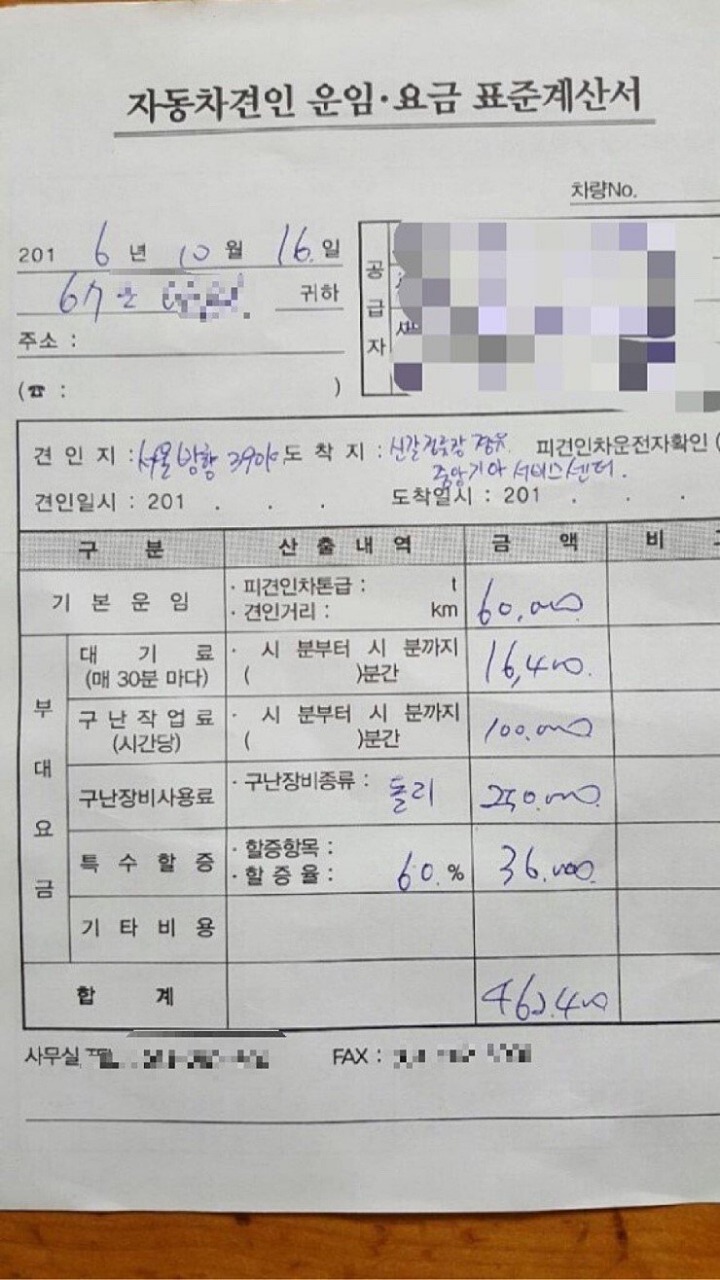 자동차견인 운임·요금 표준계산서
차량No.
2016년 10월 16.일
귀하
공급자
주소 :
(☎ : )
견인지 : 서울방향 도착지 : 신갈 경유 피견인차운전자확인 (
중앙기아서비스센터.
견인일시 : 201 . . . 도착열시 : 201 . . .
구 분 산출내역 금 액 비
기본운임 · 피견인차톤급 : t
· 견인거리 : km 60,000
부대요금
대기료 (매 30분 마다) · 시 분부터 시 분까지
( )분간 16,400.
구난작업료 (시간당) · 시 분부터 시 분까지
( )분간 100.000
구난장비사용료 · 구난장비종류 : 돌리 250.000
특수할증 · 할증항목 :
· 할증율 : 60.% 36.000
기타비용
합 계 462.400
사무실
FAX :